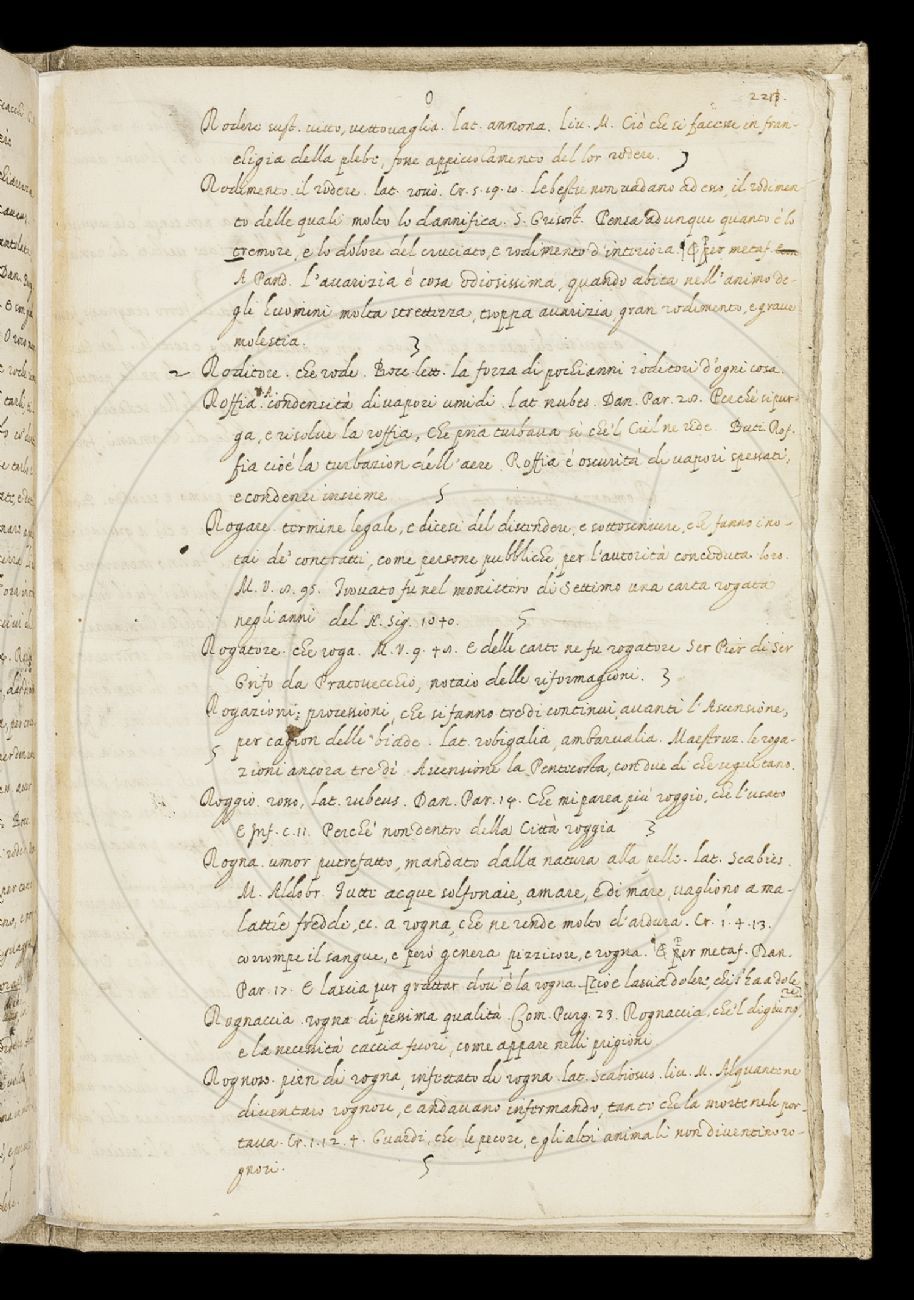 O
Rodere sust. vitto, vettovaglia. Lat. annona. Liv. M. Ciò che si facesse in fran-
cligia della plebe, fosse appiccolamento del lor rodere.
Rodimento. il rodere. lat. Cr. 5. 19. 10. Le bestie non vadano ad esso, il rodimen-
to delle quali molto lo dannifica. S. Grisost. Pensa adunque quanto è lo
tremore, e lo dolore del cruciato, e rodimento d'interiora. ¶ Per metaf.
A Pand. L'avarizia è cosa odiosissima, quando abita nell'animo de-
gli huomini molta strettezza, troppa avarizia, gran rodimento, e grave
molestia.
Roditore. che rode. Bocc. lett. La forza di pochi anni roditori d'ogni cosa.
Roffia. condensità di vapori umidi. Lat. nubes. Dan. Par. 28. Perchè si pur-
ga, e risolve la roffia, Che pria turbava si che'l Ciel ne ride. Buti. Rof-
fia cioè la turbazion dell'aere. Roffia è oscurità di vapori spessati,
e condensi insieme
Rogare. termine legale, e dicesi del distendere, e sottoscrivere, che fanno i no-
tai de' contratti, come persone pubbliche, per l'autorità conceduta loro.
M. V. 8. 95. Trovato fu nel monistero di Settimo una carta rogata
negli anni del N. Sig. 1040.
Rogatore. che roga. M. V. 9. 48. E delle carte ne fu rogatore Ser Pier di Ser
Grifo da Pratovecchio, notaio delle riformagioni.
Rogazioni; processioni, che si fanno tre dì continui avanti l'Ascensione,
per cagion delle biade. Lat. robigalia, ambarvalia. Maestruz. le roga-
zioni ancora tre dì Ascensione la Pentecosta, con due dì che seguitano.
Roggio. rosso, Lat. rubeus. Dan. Par. 14. Che mi parea più roggio, che l'usato
E Inf. c. 11. Perchè non dentro della Città roggia
Rogna. umor putrefatto, mandato dalla natura alla pelle. Lat. Scabies.
M. Aldobr. Tutte acque solfonaie, amare, e di mare, vagliono a ma-
lattie fredde, ec. a rogna, che ne rende molto d'ardura. Cr. 1. 4. 13.
corrompe il sangue, e però genera pizzicore, e rogna. ¶ Per metaf. Dan.
Par. 17. E lascia pur grattar dov'è la rogna. cioè lascia dolere, chi s'ha a dole
re
Rognaccia. rogna di pessima qualità. Com. Purg. 23. Rognaccia, che'l digiuno,
e la necessità caccia fuori, come appare nelli prigioni.
Rognoso. pien di rogna, infettato di rogna. Lat. Scabiosus. Liv. M. Alquanto ne
diventaro rognosi, e andavano infermando, tanto che la morte nele por-
tava. Cr. 1. 12. 4. Guardi, che le pecore, e gli altri animali non diventino ro-
gnosi.